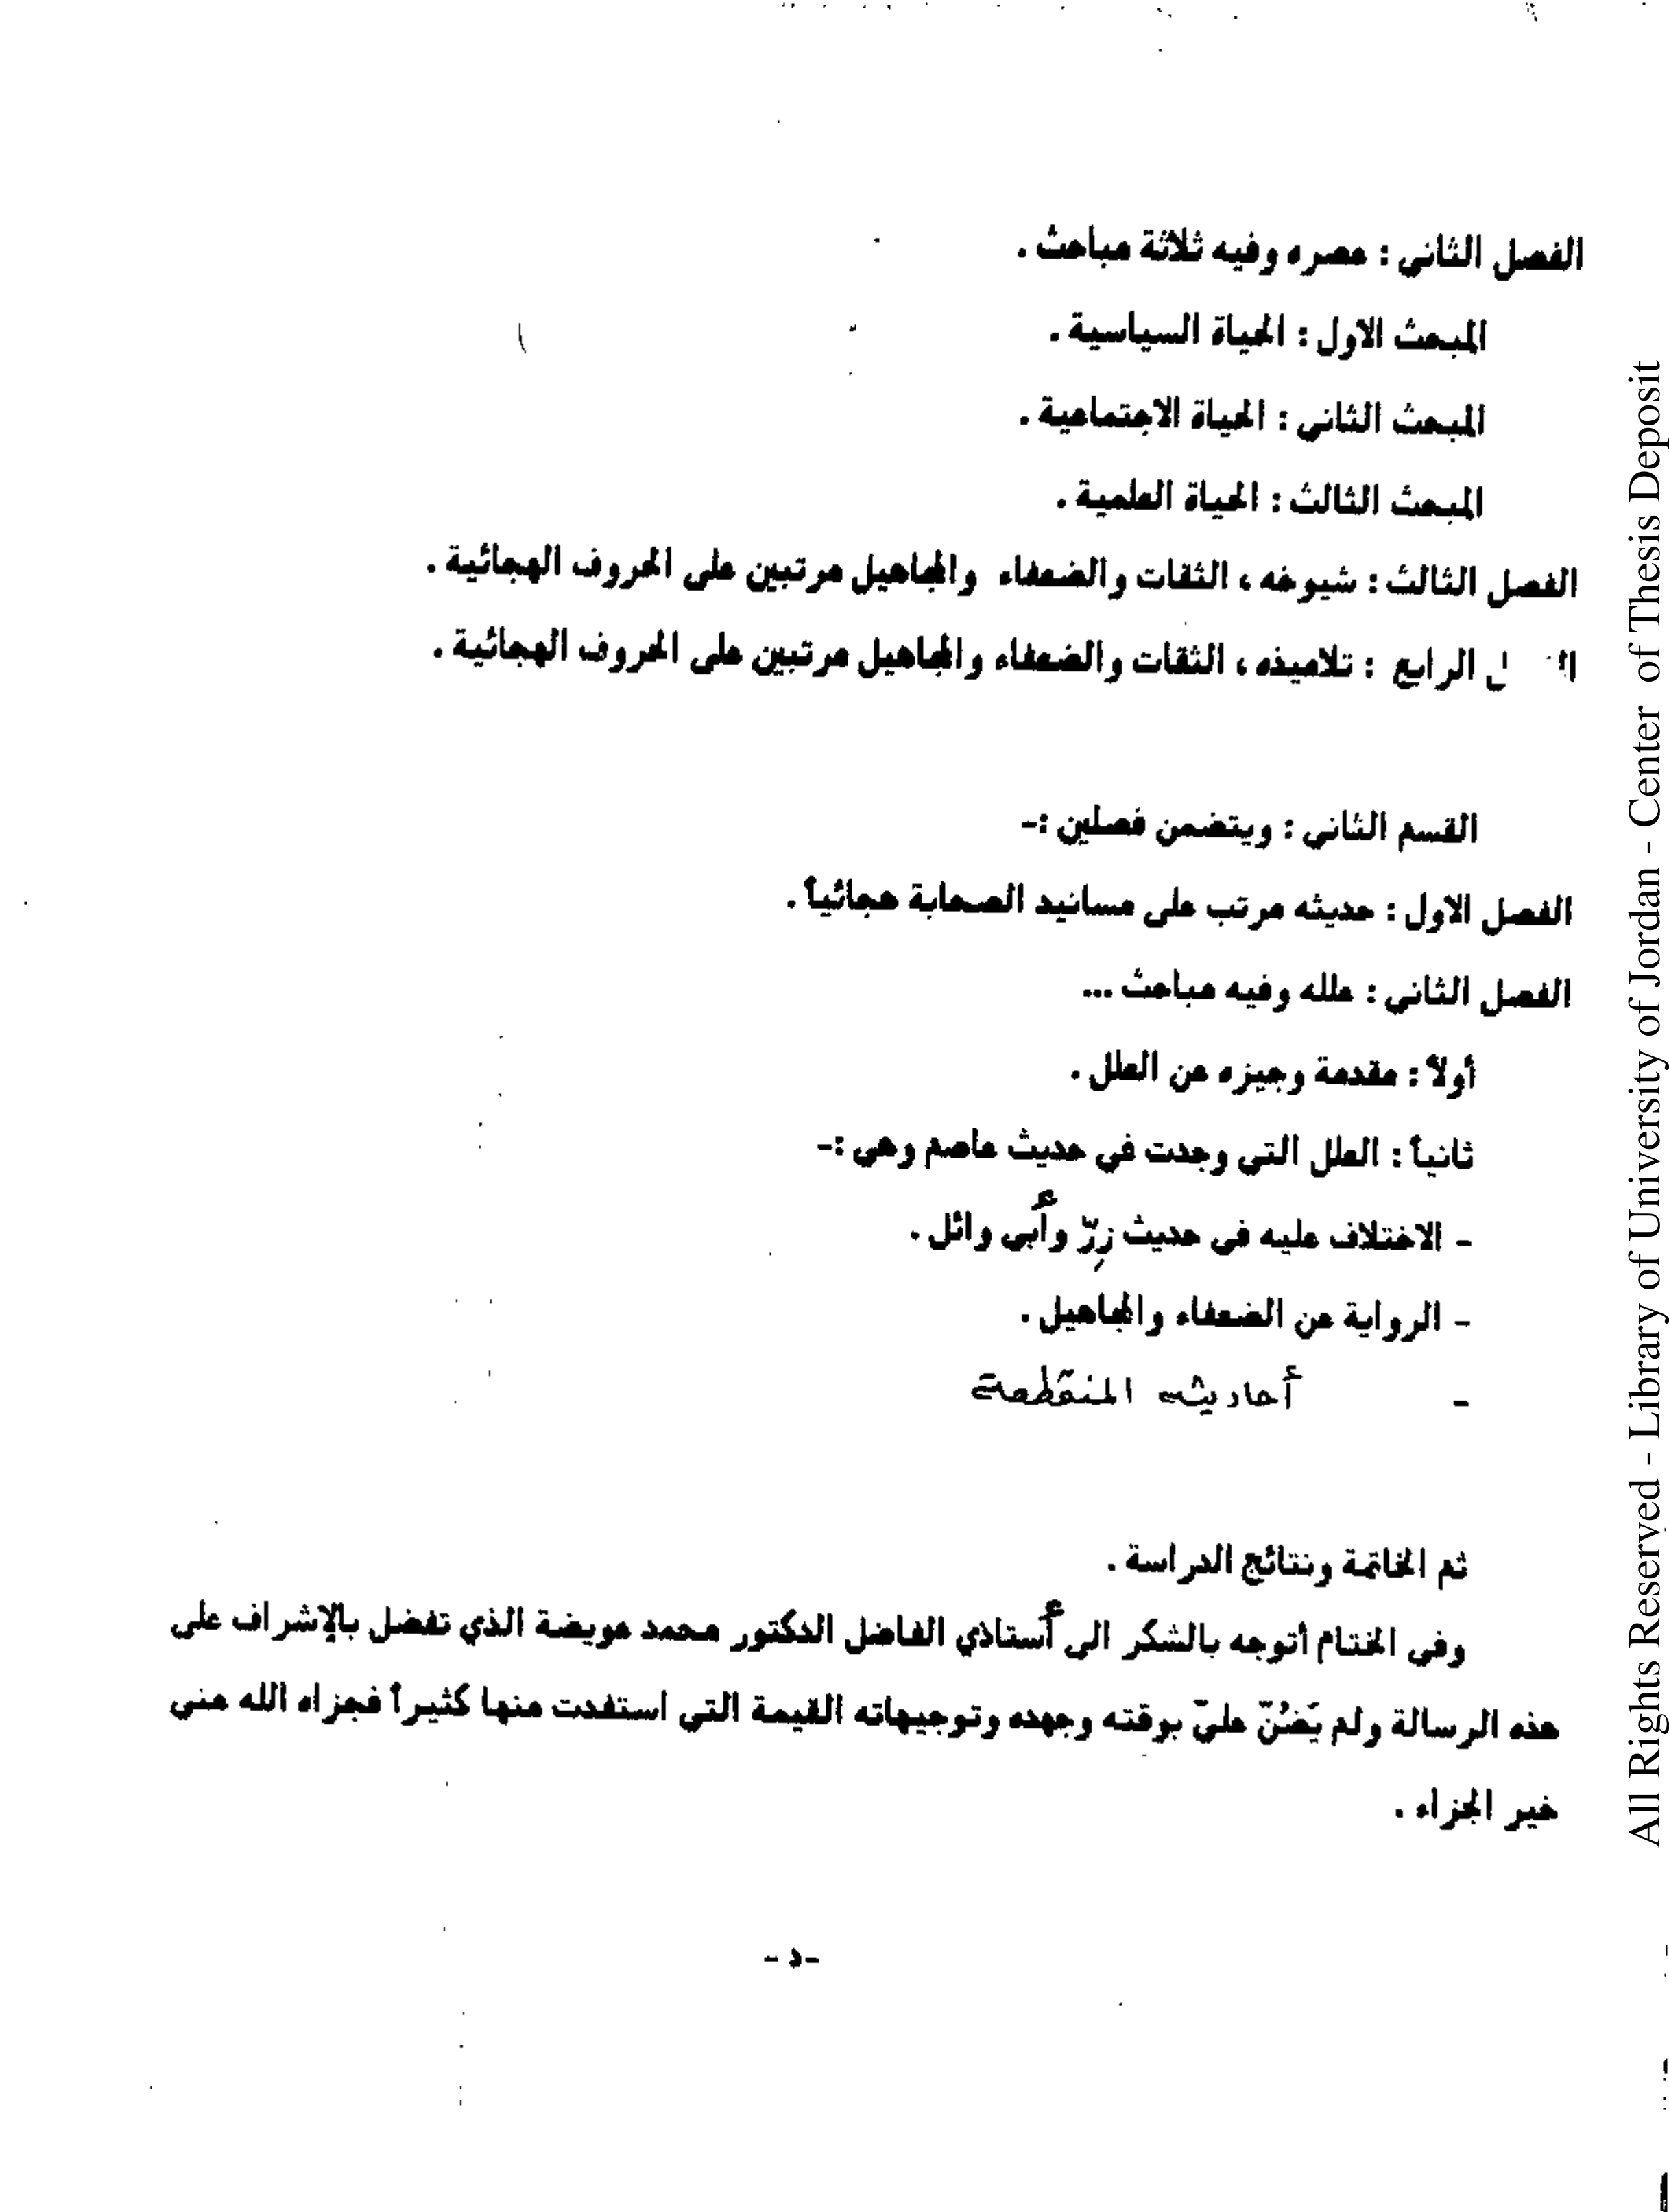 الفصل الثاني : عصره وفيه ثلاثة مباحث .
المبحث الاول : الحياة السياسية .
المبحث الثاني : الحياة الاجتماعية .
المبحث الثالث : الحياة العلمية .
الفصل الثالث : شيوخه ، الثقات والضعفاء والمجاهيل مرتبين على الحروف الهجائية .
الرابع : تلاميذه ، الثقات والضعفاء والمجاهيل مرتبين على الحروف الهجائية .
القسم الثاني : ويتضمن فصلين :-
الفصل الاول : حديثه مرتب على مسانيد الصحابة هجائياً .
الفصل الثاني : علله وفيه مباحث ...
أولاً : مقدمة وجيزه عن العلل .
ثانياً : العلل التي وجدت في حديث عاصم وهي :-
- الاختلاف عليه في حديث زِرّ وأبي وائل .
- الرواية عن الضعفاء والمجاهيل .
- أحاديثه المنقطعة
ثم الخاتمة ونتائج الدراسة .
وفي الختام أتوجه بالشكر الى أستاذي الفاضل الدكتور محمد عويضة الذي تفضل بالإشراف على
هذه الرسالة ولم يَضُنّ عليّ بوقته وجهده وتوجيهاته القيمة التي استفدت منها كثيراً فجزاه الله عني
خير الجزاء .
- د -
All Rights Reserved - Library of University of Jordan - Center of Thesis Deposit